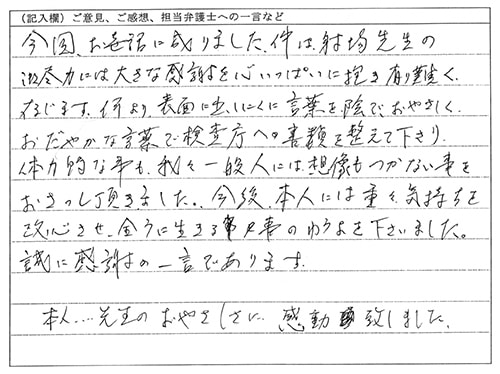 （記入欄）ご意見、ご感想、担当弁護士への一言など
今回、お世話に成りました、件は、射場先生の
ご尽力には大きな感謝を心いっぱいに抱き有り難く、
存じます。何より、表面に出にくに言葉を陰で、おやさしく、
おだやかな言葉で検査庁への書類を整えて下さり、
体力的な事も、我々一般人には、想像もつかない事を
おさっし頂きました。今後、本人には重々、気持ちを
改心させ、生きる事のゆうよを下さいました。
誠に感謝の一言であります。
本人…先生のおやさしさに、感動致しました。